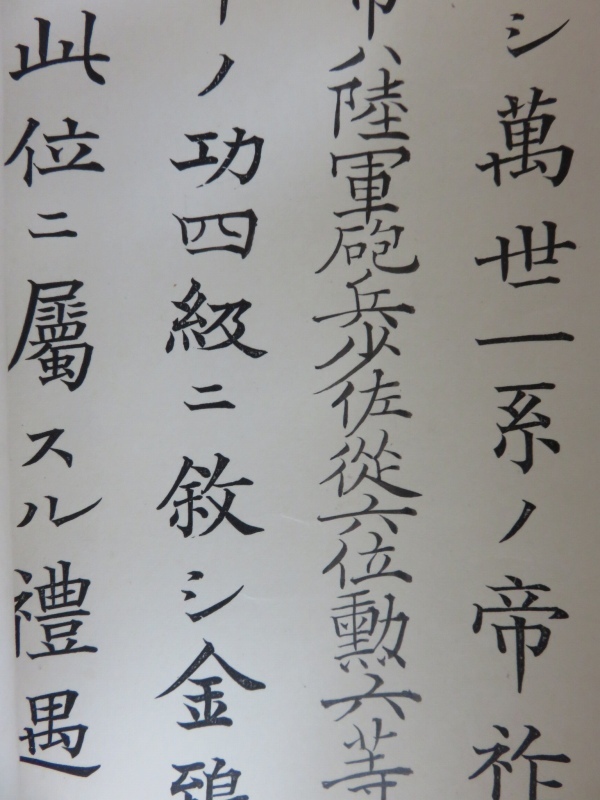 シ萬世一系ノ帝祚
帝ハ陸軍砲兵少佐從六位勲六等
ノ功四級ニ敘シ金鵄
此位ニ屬スル禮遇